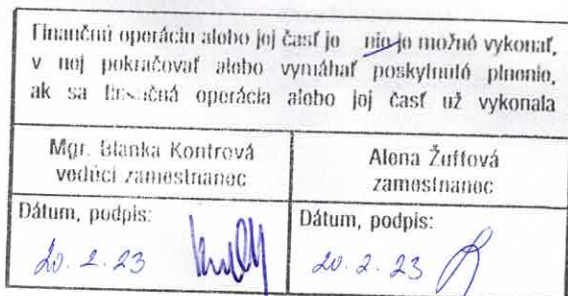 Finančnú operáciu alebo jej časť je nie je možné vykonať,
v nej pokračovať alebo vymáhať poskytnuté plnenie,
ak sa finančná operácia alebo jej časť už vykonala
Mgr. Blanka Kontrová
vedúci zamestnanec
Alena Žuffová
zamestnanec
Dátum, podpis:
20. 2. 23
Dátum, podpis:
20. 2. 23